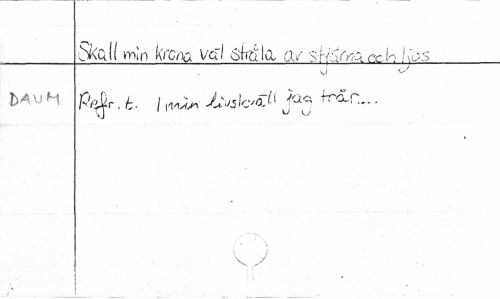 Skall min krona väl stråla av stjärna och ljus
DAUM Refr. t. I min livskväll jag trår....